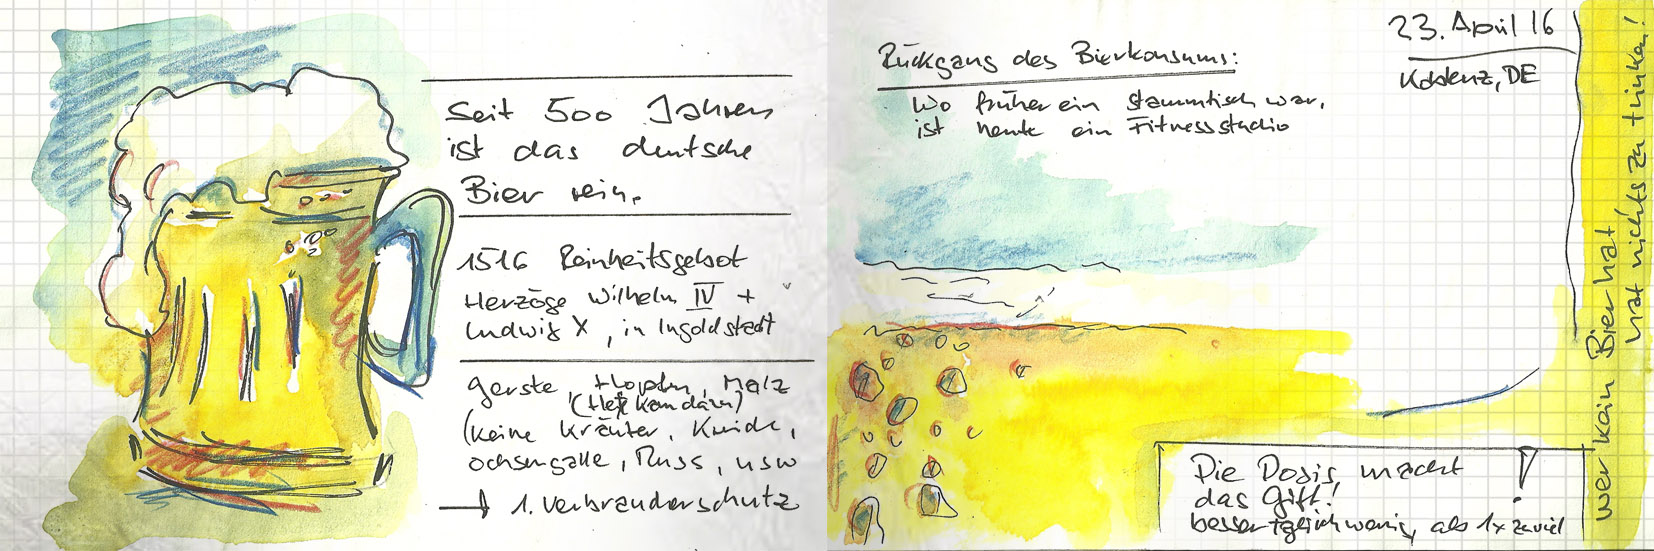 Seit 500 Jahren
ist das deutsche
Bier rein.
1516 Reinheitsgebot
Herzöge Wilhelm IV +
Ludwig X, in Ingoldstadt
Gerste, Hopfen, Malz
(Hefe kam dazu)
(keine Kräuter, Kreide,
Ochsengalle, Russ, usw
→ 1. Verbraucherschutz
23. April 16
Koblenz, DE
Rückgang des Bierkonsums:
Wo früher ein Stammtisch war,
ist heute ein Fitnessstudio
wer kein Bier hat
hat nichts zu trinken!
Die Dosis macht !
das Gift!
besser täglich wenig, als 1x zuviel